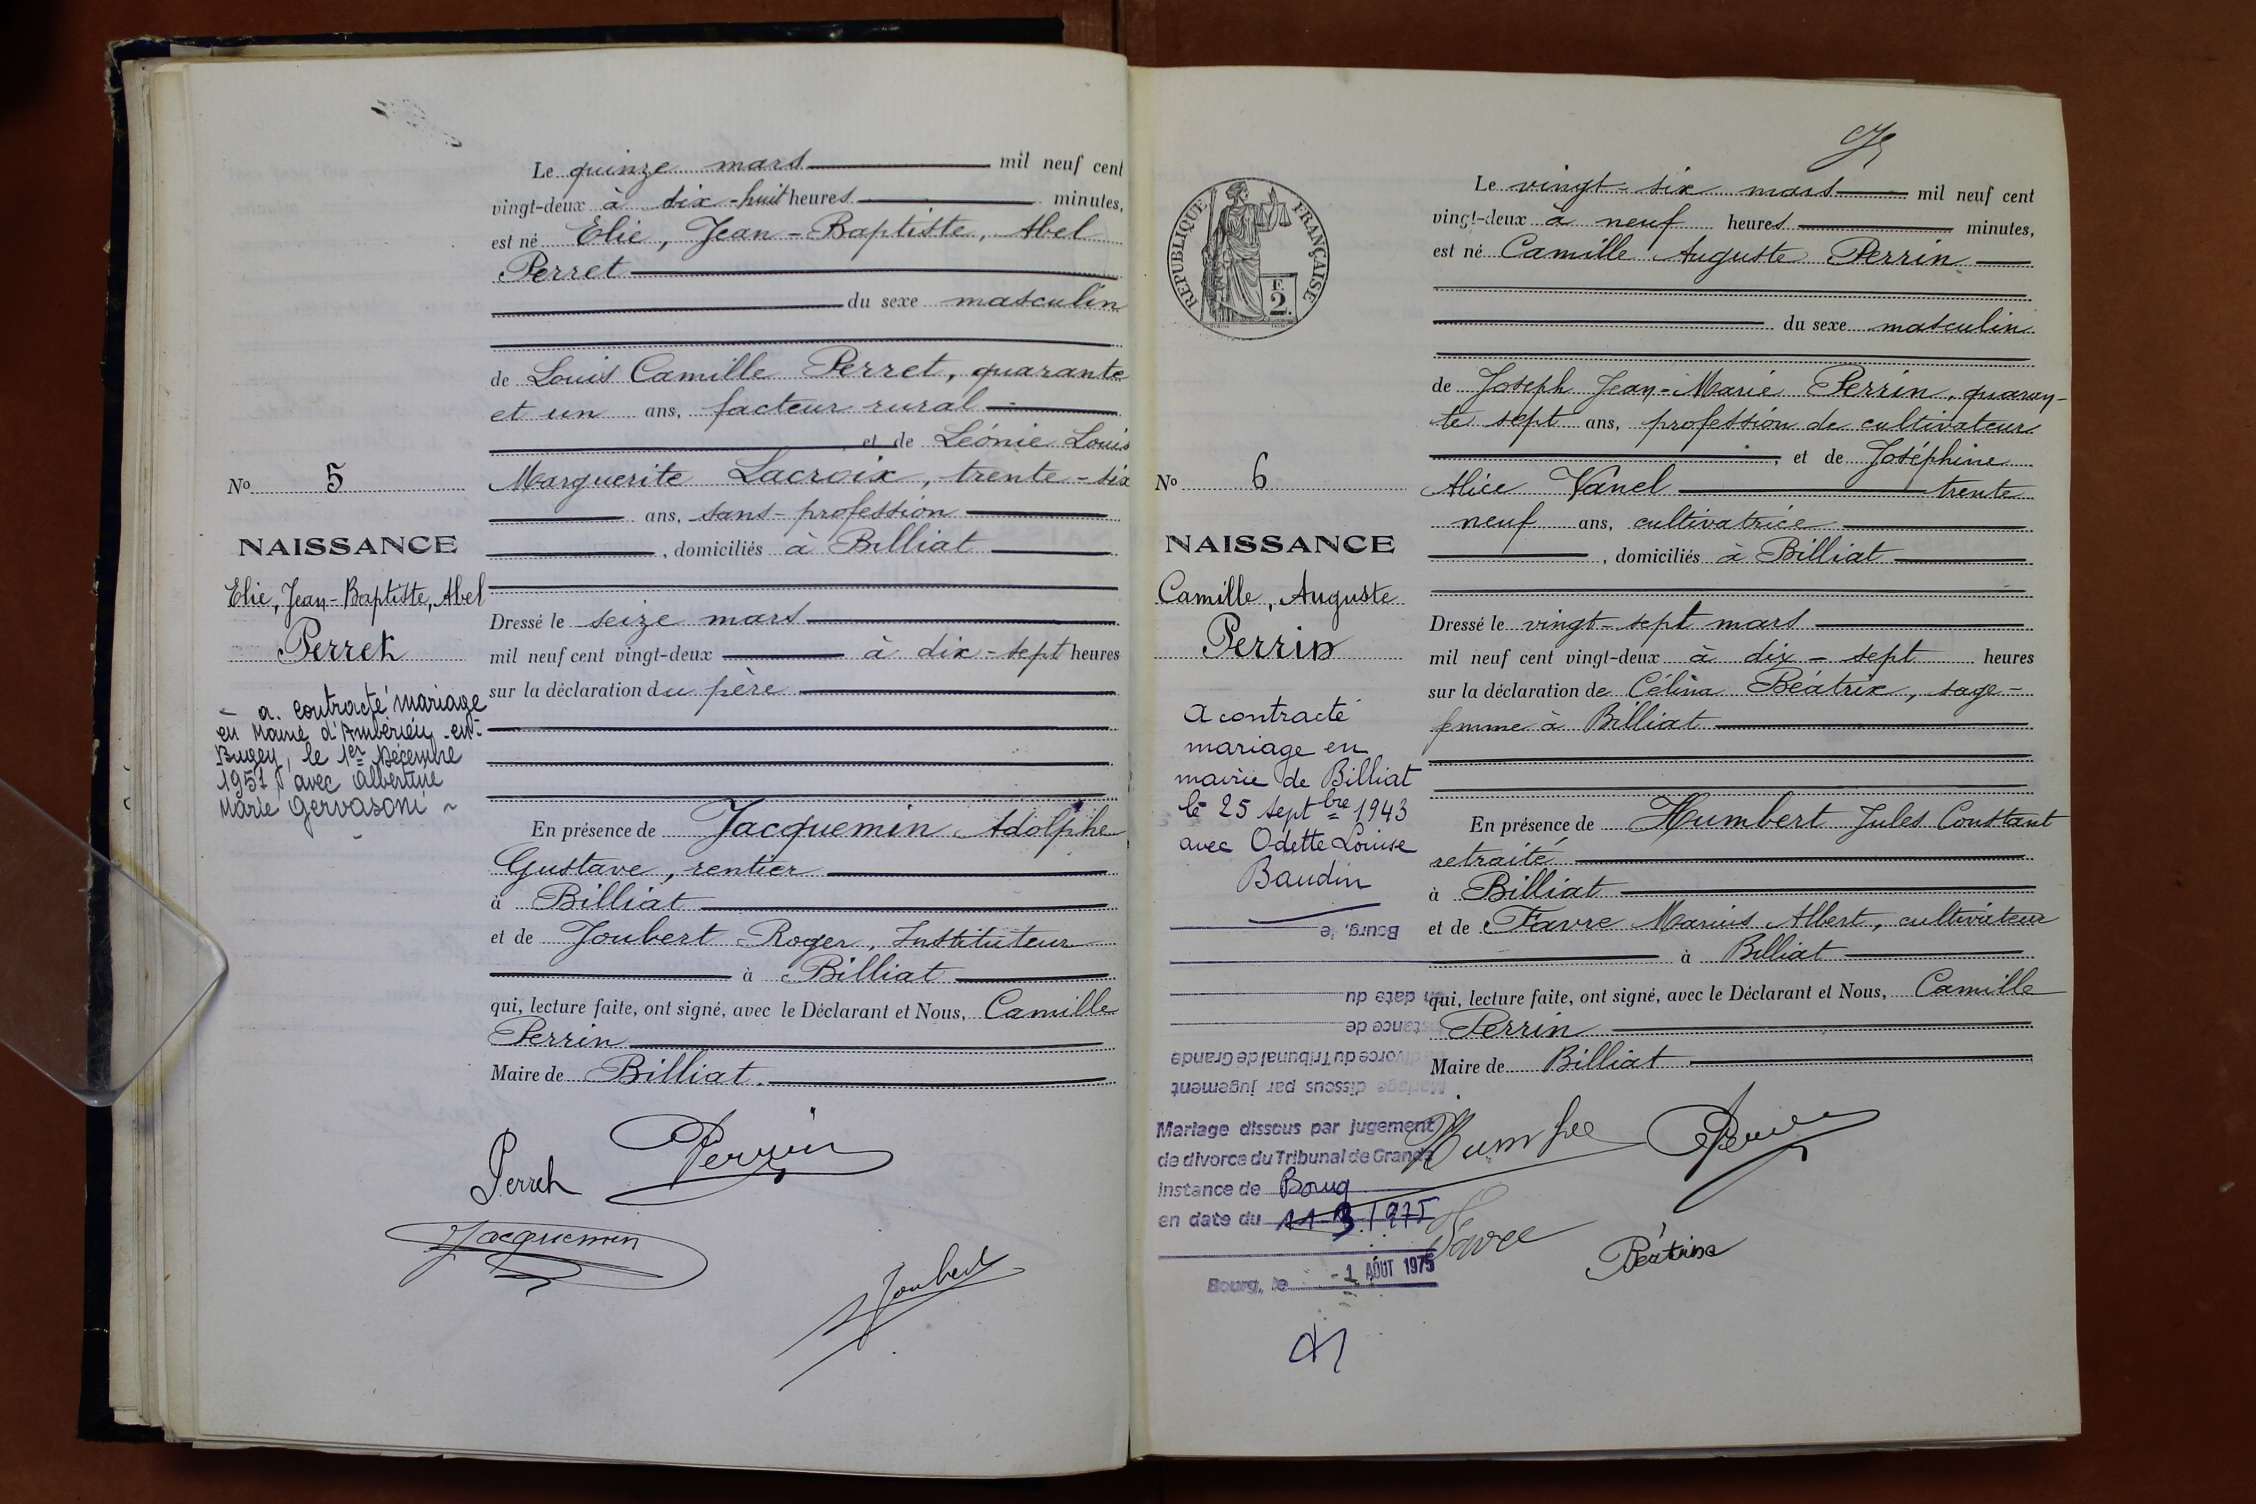 Le quinze mars mil neuf cent
vingt-deux à dix-huit heures minutes,
est né Elie, Jean-Baptiste, Abel
Perret
du sexe masculin
de Louis Camille Perret, quarante
et un ans, facteur rural
et de Léonie Louis
Marguerite Lacroix, trente-six
ans, sans-profession
, domiciliés à Billiat
Dressé le seize mars
mil neuf cent vingt-deux à dix-sept heures
sur la déclaration du père
En présence de Jacquemin Adolphe
Gustave, rentier
à Billiat
et de Joubert Roger, Instituteur
à Billiat
qui, lecture faite, ont signé, avec le Déclarant et Nous, Camille
Perrin
Maire de Billiat.
Perret Perrin
Jacquemin
Joubert
No 5
NAISSANCE
Elie, Jean-Baptiste, Abel
Perret
- a contracté mariage
en Mairie d'Ambérieu-en-
Bugey, le 1er Décembre
1951 avec Albertine
Marie Gervasoni
Le vingt-six mars mil neuf cent
vingt-deux à neuf heures minutes,
est né Camille Auguste Perrin
du sexe masculin
de Joseph Jean-Marie Perrin, quaran-
te sept ans, profession de cultivateur
, et de Joséphine
Alice Vanel trente
neuf ans, cultivatrice
, domiciliés à Billiat
Dressé le vingt-sept mars
mil neuf cent vingt-deux à dix-sept heures
sur la déclaration de Célina Béatrix, sage-
femme à Billiat
En présence de Humbert Jules Constant
retraité
à Billiat
et de Favre Marius Albert, cultivateur
à Billiat
qui, lecture faite, ont signé, avec le Déclarant et Nous, Camille
Perrin
Maire de Billiat
Humbert Perrin
Favre
Béatrix
RÉPUBLIQUE FRANÇAISE
F.
2.
No 6
NAISSANCE
Camille, Auguste
Perrin
A contracté
mariage en
mairie de Billiat
le 25 septbre 1943
avec Odette Louise
Baudin
Bourg, le
en date du
instance de
de divorce du Tribunal de Grande
Mariage dissous par jugement
Mariage dissous par jugement
de divorce du Tribunal de Grande
instance de Bourg
en date du 11-3.1975
Bourg, le -1 AOUT 1975